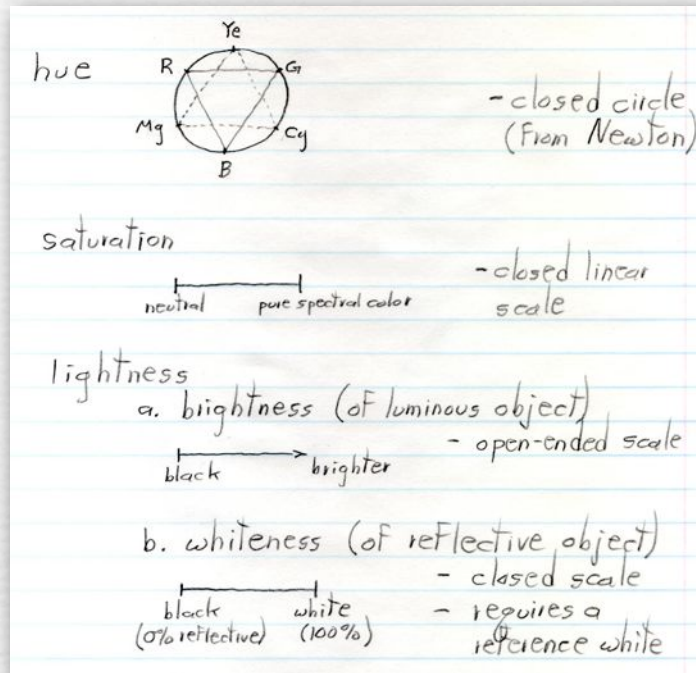 hue
Ye
R
G
Mg
Cy
B
- closed circle
(from Newton)
saturation
neutral
pure spectral color
- closed linear
scale
lightness
a. brightness (of luminous object)
- open-ended scale
black
brighter
b. whiteness (of reflective object)
- closed scale
black
(0% reflective)
white
(100%)
- requires a
reference white